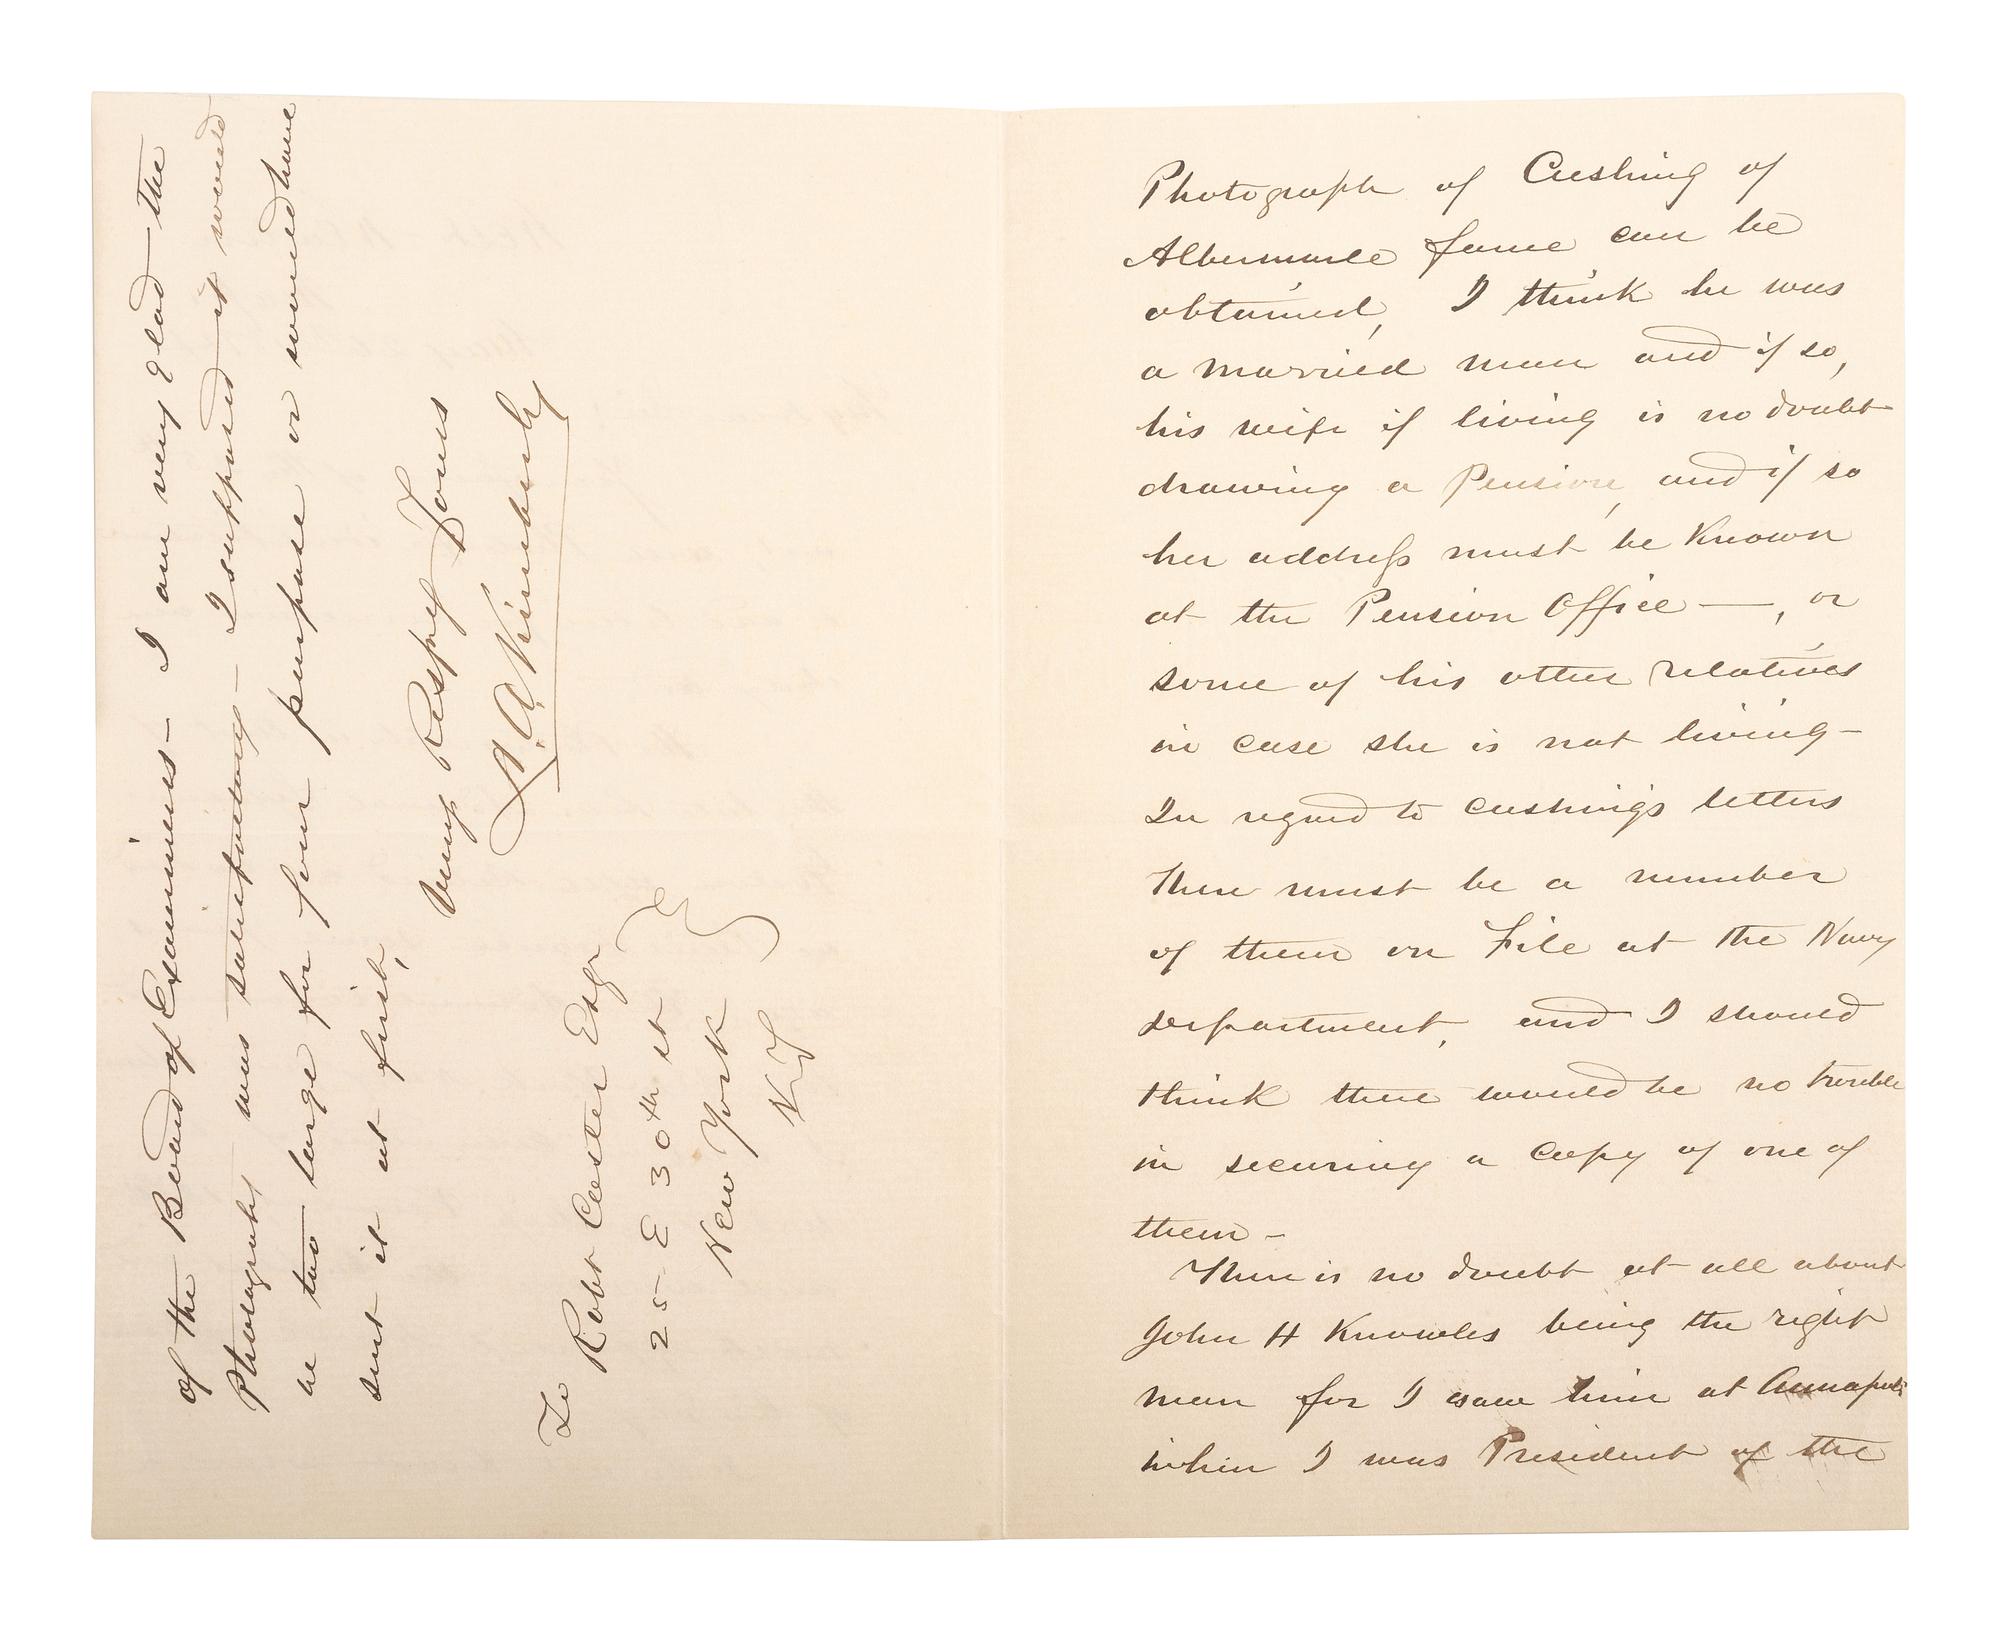 Photograph of Cushing of
Albermarle fame can be
obtained, I think he was
a married man and if so,
his wife if living is no doubt
drawing a Pension, and if so
her address must be Known
at the Pension Office —, or
some of his other relatives
in case she is not living –
In regard to Cushing's letters
there must be a number
of them on File at the Navy
department, and I should
think there would be no trouble
in securing a copy of one of
them –
There is no doubt at all about
John H Knowles being the right
man for I saw him at Annapolis
when I was President of the
of the Board of Examiners – I am very Glad the
Photograph was satisfactory – I supposed it would
be too large for your purpose or would have
sent it at first,
Very Respy Yours
L. A. Kimberly
To
Robt Coster Esqr
25 E 30th st
New York
N.Y